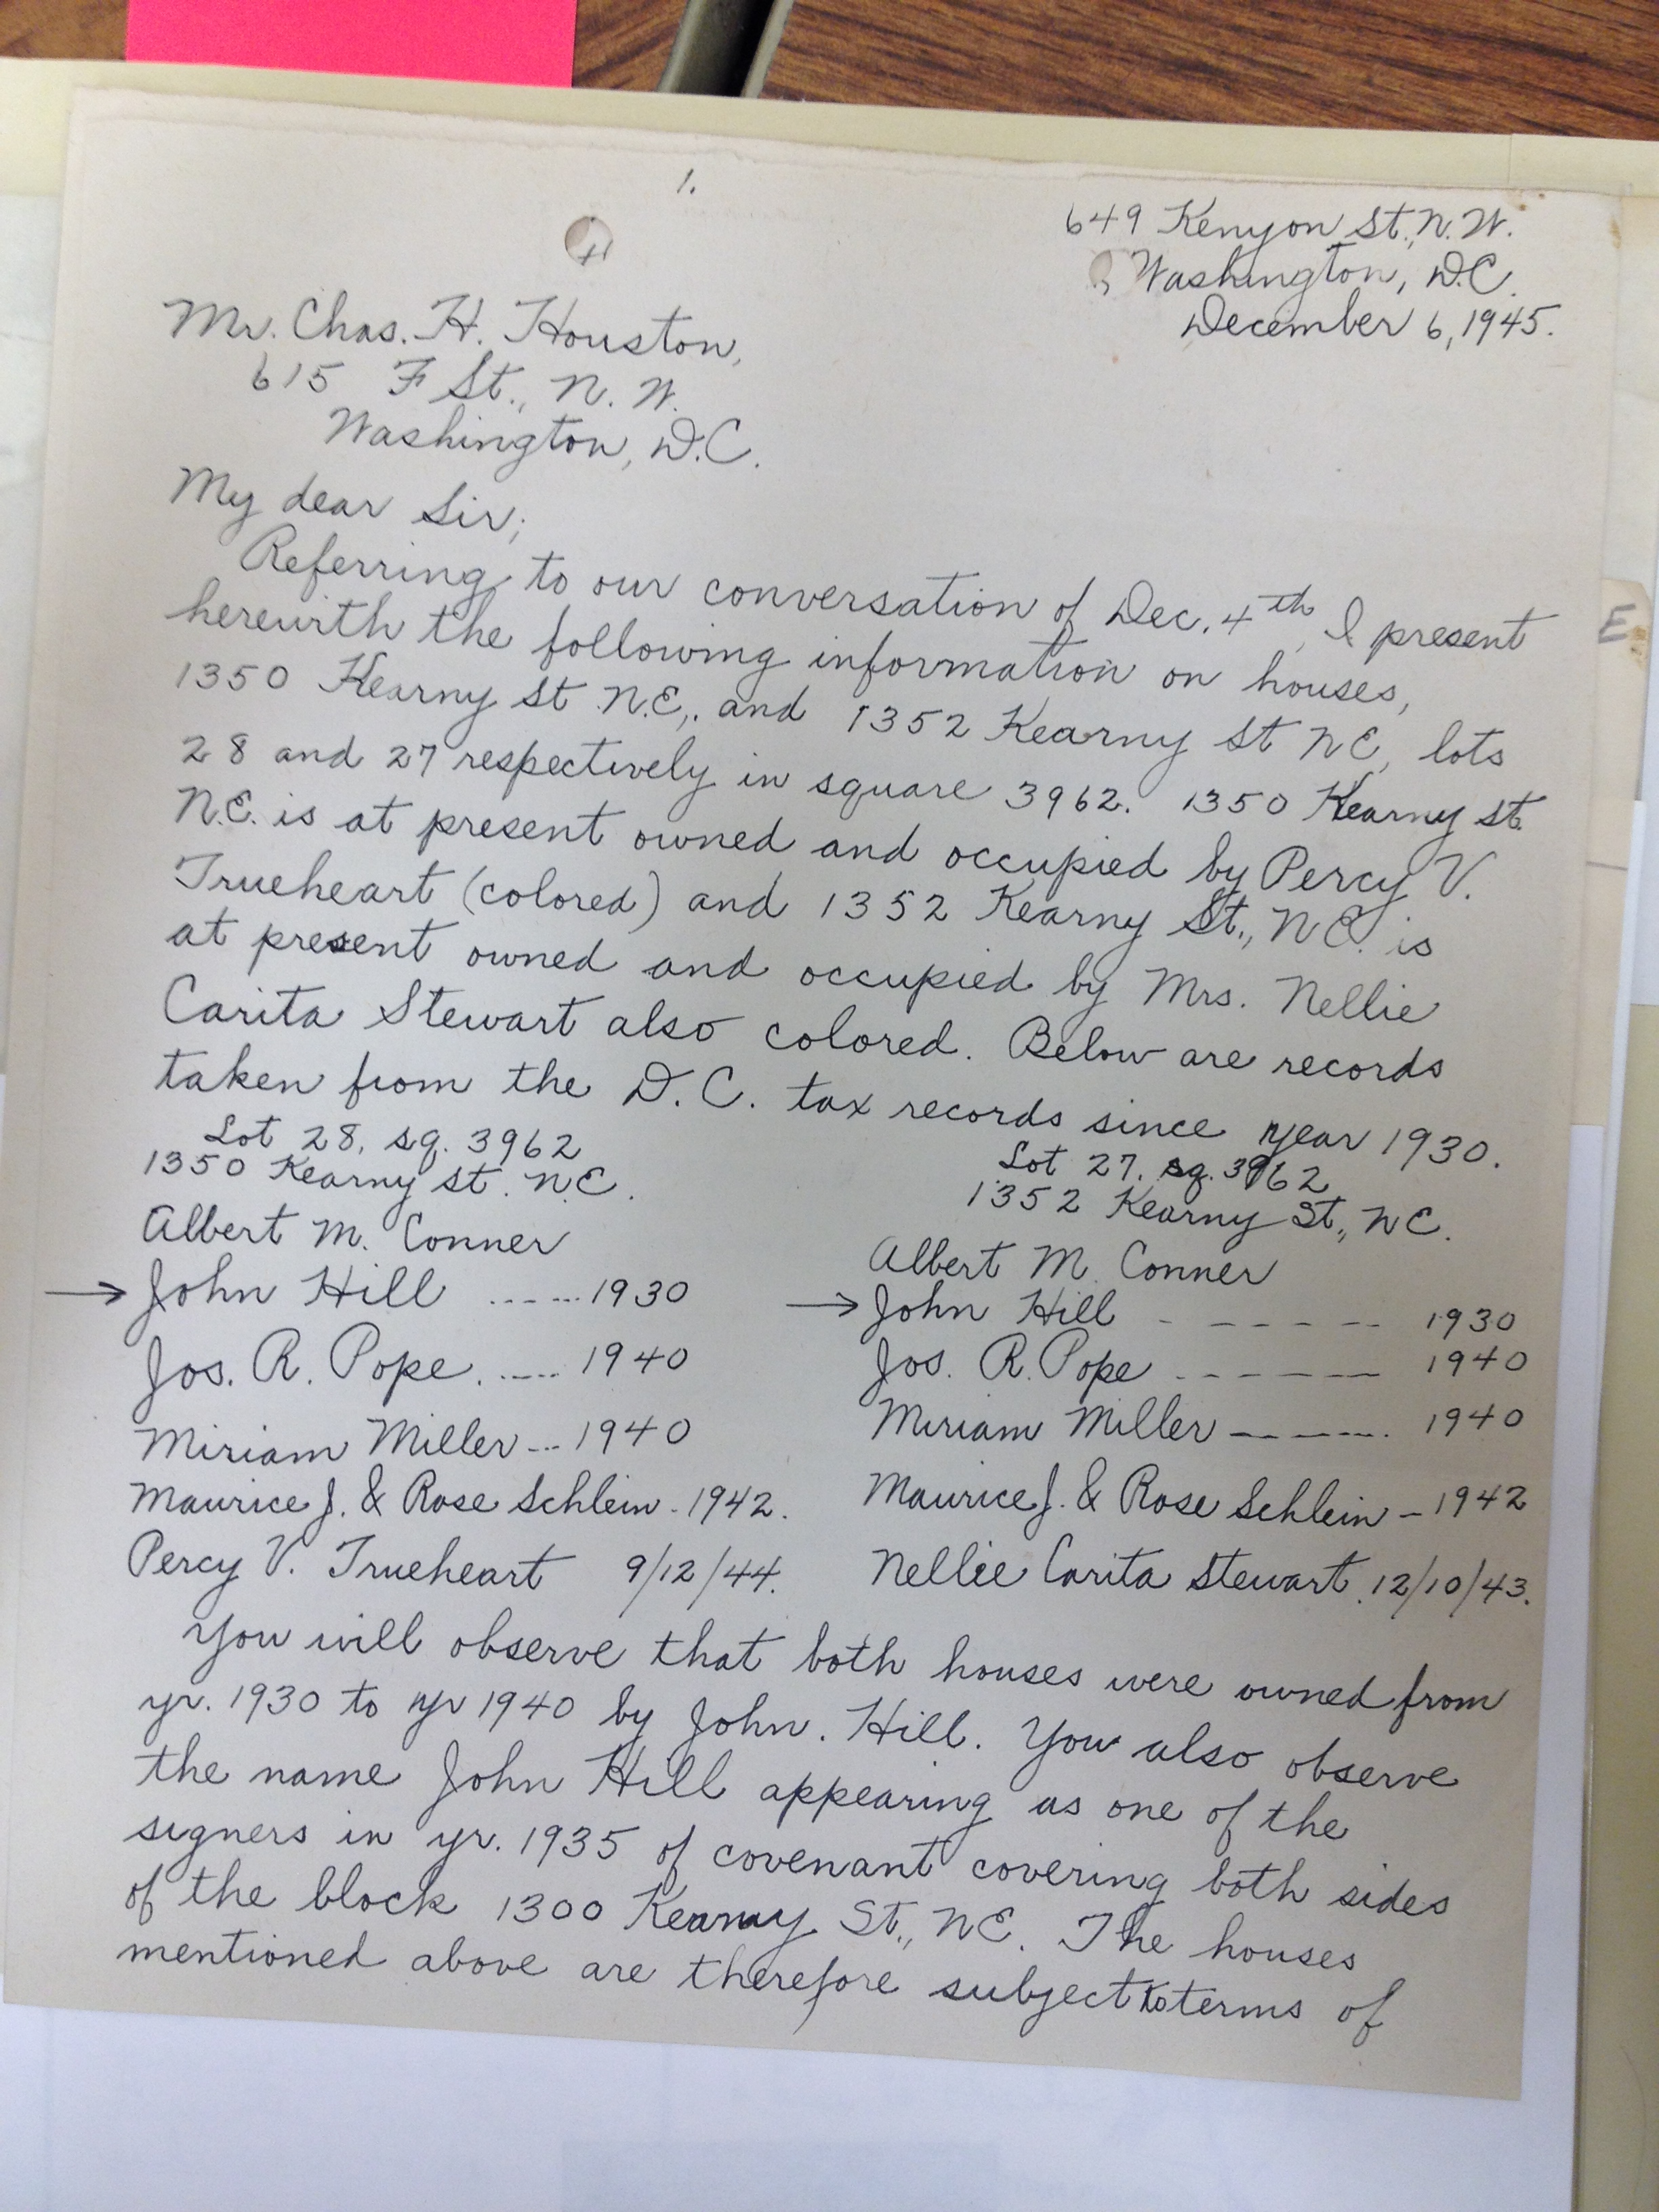 1.
649 Kenyon St., N.W.
Washington, D.C.
December 6, 1945.
Mr. Chas. H. Houston,
615 F St., N.W.
Washington, D.C.
My dear Sir;
Referring to our conversation of Dec. 4th, I present
herewith the following information on houses,
1350 Kearny St N.E., and 1352 Kearny St NE, lots
28 and 27 respectively in square 3962. 1350 Kearny St.
N.E. is at present owned and occupied by Percy V.
Trueheart (colored) and 1352 Kearny St., NE. is
at present owned and occupied by Mrs. Nellie
Carita Stewart also colored. Below are records
taken from the D.C. tax records since year 1930.
Lot 28, sq. 3962
1350 Kearny St. N.E.
Albert M. Conner
→ John Hill ...... 1930
Jos. R. Pope ..... 1940
Miriam Miller ... 1940
Maurice J. & Rose Schlein - 1942.
Percy V. Trueheart 9/12/44.
Lot 27, sq. 3962
1352 Kearny St., NE.
Albert M. Conner
→ John Hill - - - - - - 1930
Jos. R. Pope - - - - - - 1940
Miriam Miller - - - - . 1940
Maurice J. & Rose Schlein - 1942
Nellie Carita Stewart. 12/10/43.
You will observe that both houses were owned from
yr. 1930 to yr 1940 by John. Hill. You also observe
the name John Hill appearing as one of the
signers in yr. 1935 of covenant covering both sides
of the block 1300 Kearny St., NE. The houses
mentioned above are therefore subject to terms of
E